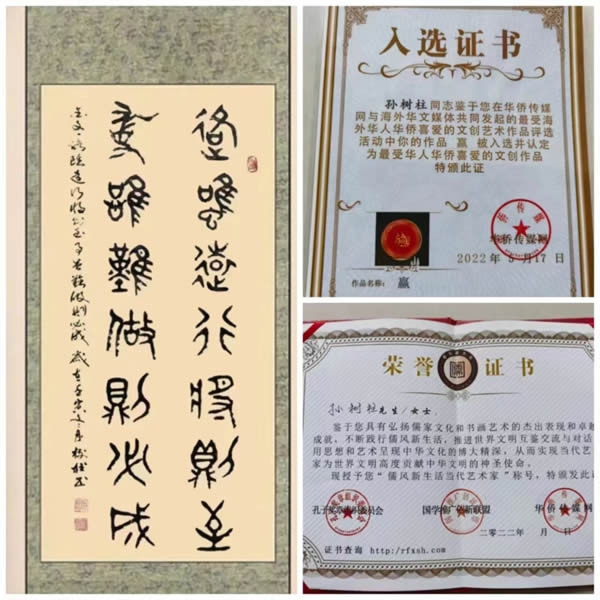 路雖遠行將則至
事雖難做則必成
入选证书
孙树柱同志鉴于您在华侨传媒
网与海外华文媒体共同发起的最受海
外华人华侨喜爱的文创艺术作品评选
活动中你的作品 赢 被入选并认定
为最受华人华侨喜爱的文创作品
特颁此证
华侨传媒网
2022年5月17日
作品名称: 赢
荣誉证书
孙树柱先生/女士:
鉴于您具有弘扬儒家文化和书画艺术的杰出表现和卓越
成就,不断践行儒风新生活,推进世界文明互鉴交流与对话
用思想和艺术呈现中华文化的博大精深,从而实现当代艺
家为世界文明高度贡献中华文明的神圣使命。
现授予您“儒风新生活当代艺术家”称号,特颁发此证
国学推广创新联盟
华侨传媒网
二〇二二年 月 日
证书查询 http://rfxsh.com/